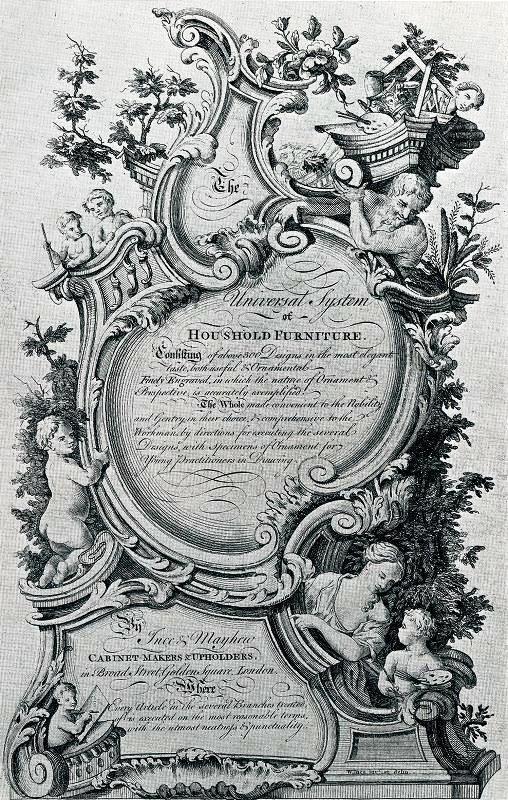 The
Universal System
of
HOUSHOLD FURNITURE.
Consisting of above 300 Designs in the most elegant
taste, both useful & Ornamental
Finely Engraved, in which the nature of Ornament &
Perspective, is accurately exemplified.
The Whole made convenient to the Nobility
and Gentry, in their choice, & comprehensive to the
Workman, by directions for executing the several
Designs, with specimens of Ornament for
Young Practitioners in Drawing.
By
Ince & Mayhew
CABINET-MAKERS & UPHOLDERS,
in Broad Street, Golden Square, London.
Where
Every Article in the several Branches treated
of is executed on the most reasonable terms,
with the utmost neatness & punctuality.